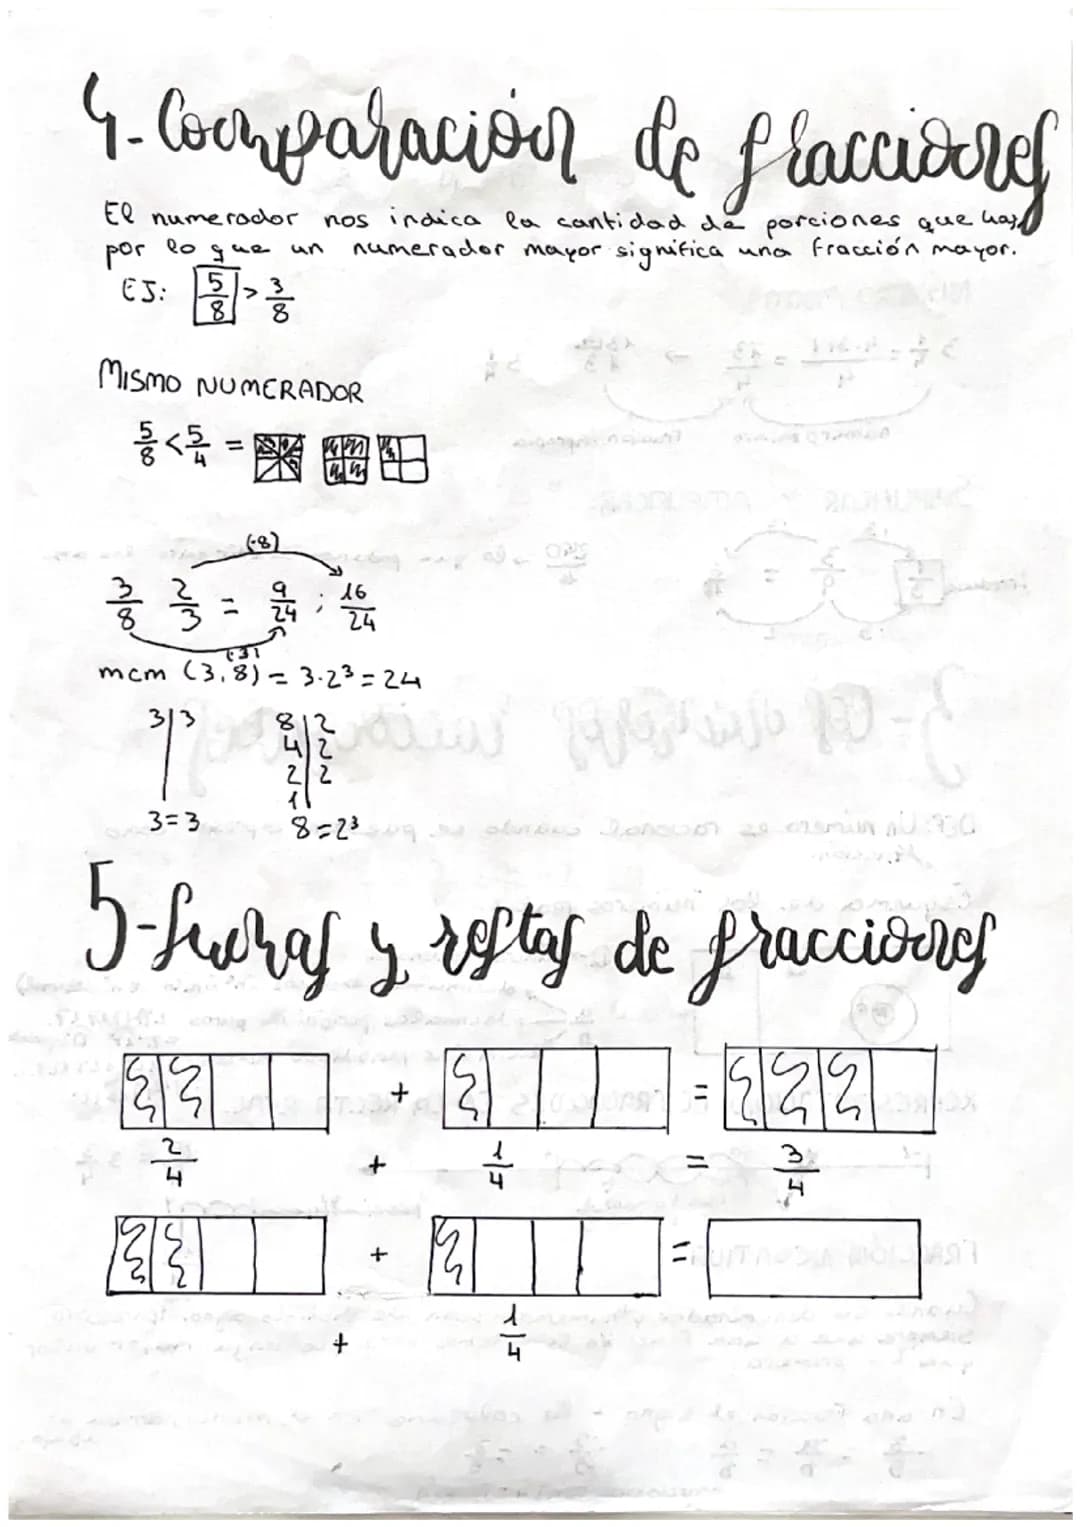 4-Comparación de fracciones
El numerador nos indica la cantidad de porciones que hay,
por lo que un numerador mayor significa una fracción mayor.
EJ: 5/8 > 3/8
MISMO NUMERADOR
5/8 < 5/4 =
(·8)
3/8 2/3 = 9/24 ; 16/24
(·3)
mcm (3,8) = 3·2³ = 24
3|3 8|2
4|2
2|2
1|
3=3 8=2³
5-Sumas y restas de fracciones
+ =
2/4 + 1/4 = 3/4
+ =
+ 1/4